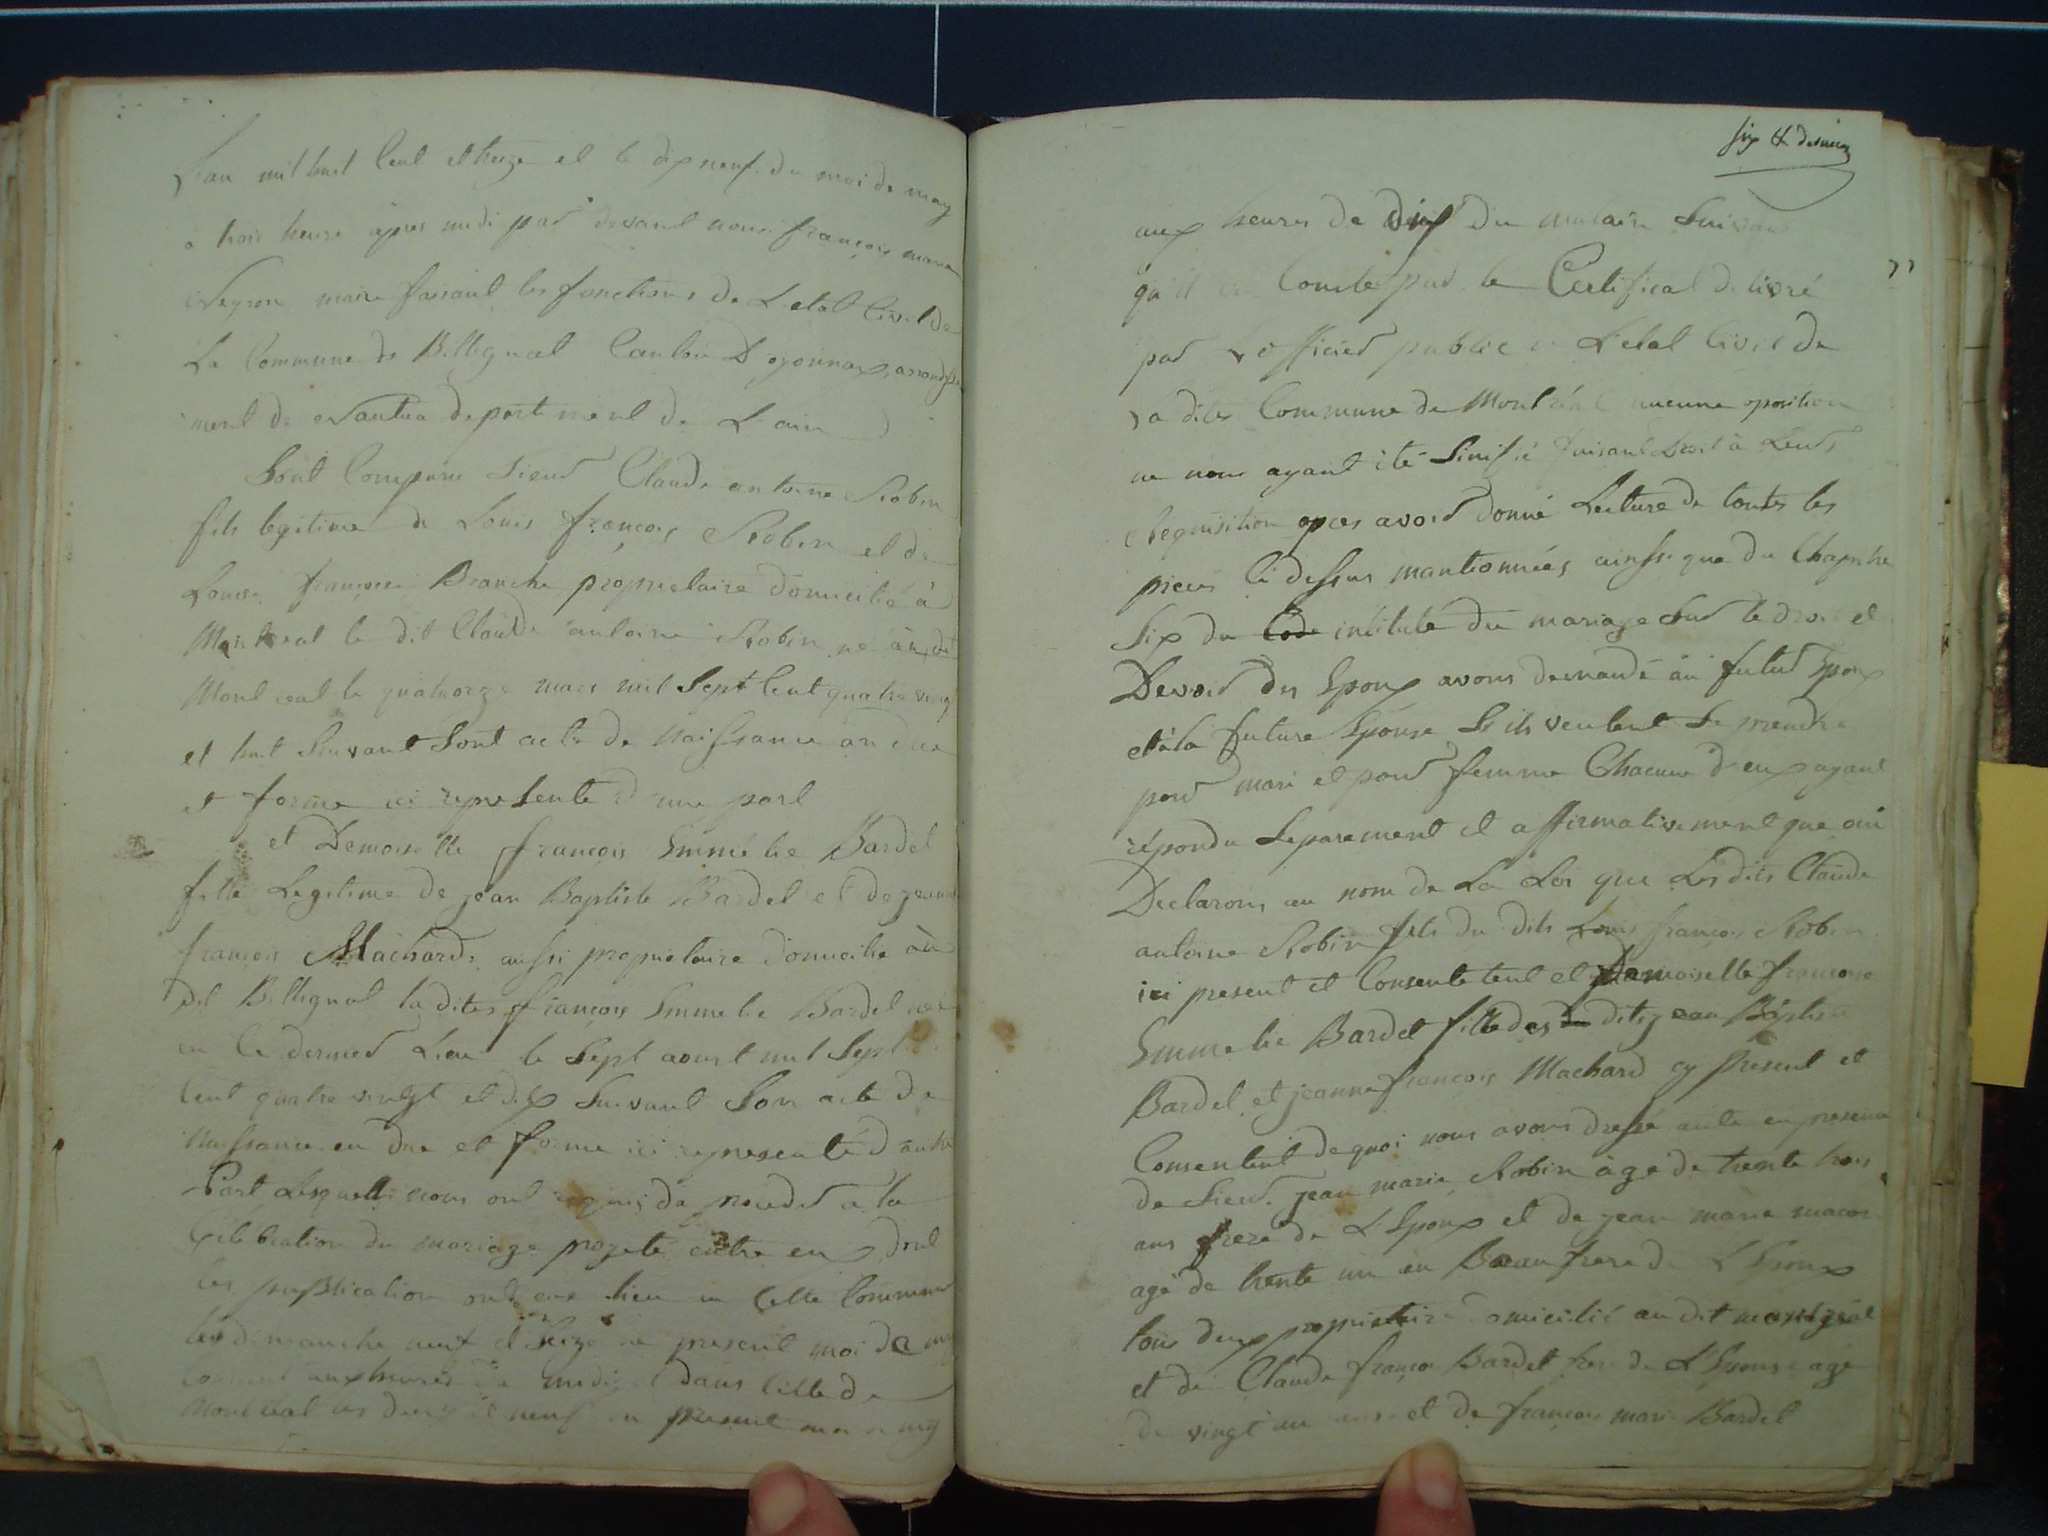 L'an mil huit Cent et treize et le dix neuf du moi de may
a trois heure après midi par devant nous françois marie
Neyron maire faisant les fonctions de L'etat Civil de
La Commune de Bellignat Canton D'oyonnax, arrondisse
ment de Nantua departement de L'ain
Sont Comparu Sieur Claude antoine Robin
fils legitime de Louis françois Robin et de
Louise françoise Branche proprietaire domicilié à
Montreal le dit Claude antoine Robin né au dit
Montreal le quatorze mars mil Sept Cent quatre vingt
et huit Suivant Sont acte de Naissance en due
et forme ici represente d'une part
et Demoiselle françois Emmélie Bardet
fille Legitime de jean Baptiste Bardet et de jeanne
françois Machard aussi proprietaire domicilie au
dit Bellignat la dites françois Emmelie Bardet née
en Ce dernier Lieu le Sept aoust mil Sept
Cent quatre vingt et dix Suivant Son acte de
Naissance en due et forme ici representé d'autre
Part Lesquells nous ont requis de proceder a la
Célébration du mariage projeté entre eux dont
les publication ont eue lieu en Cette Commune
les dimanche neuf et Seize du present moi de may
aux heures de midi et dans Celle de
Montreal les deux et neuf du present moi de may
six & dernier
aux heures de dix du matin Suivant
77
qu'il en Conste par le Certificat delivré
par L'officier public de L'etat Civil de
La dites Commune de Montréal aucune oposition
ne nous ayant été Sinifié faisant droit à Leurs
Requisition apres avoir donné Lecture de toutes les
pieces Ci dessus mantionnées ainssi que du Chapitre
Six du Code intitulé du mariage Sur le droit et
Devoir des Epoux avons demandé au futur Epoux
et à la future Epouse S'ils veulent Se prendre
pour mari et pour femme Chacune d'eux ayant
répondu Separement et affirmativement que oui
Declarons au nom de La Loi que Lesdits Claude
antoine Robin fils du dits Louis françois Robin
ici present et Consentetent et Demoiselle françoise
Emmelie Bardet fille des dits jean Baptiste
Bardet et jeanne françois Machard cy present et
Consentent de quoi nous avons dressé acte en presence
de Sieur jean marie Robin âgé de trente trois
ans frere de L'Epoux et de jean marie macon
agé de trente un an Beau frere de L'Epoux
tous deux proprietaire domicilié au dit montréal
et de Claude françois Bardet frere de L'Epouse agé
de vingt un ans et de françois marie Bardet